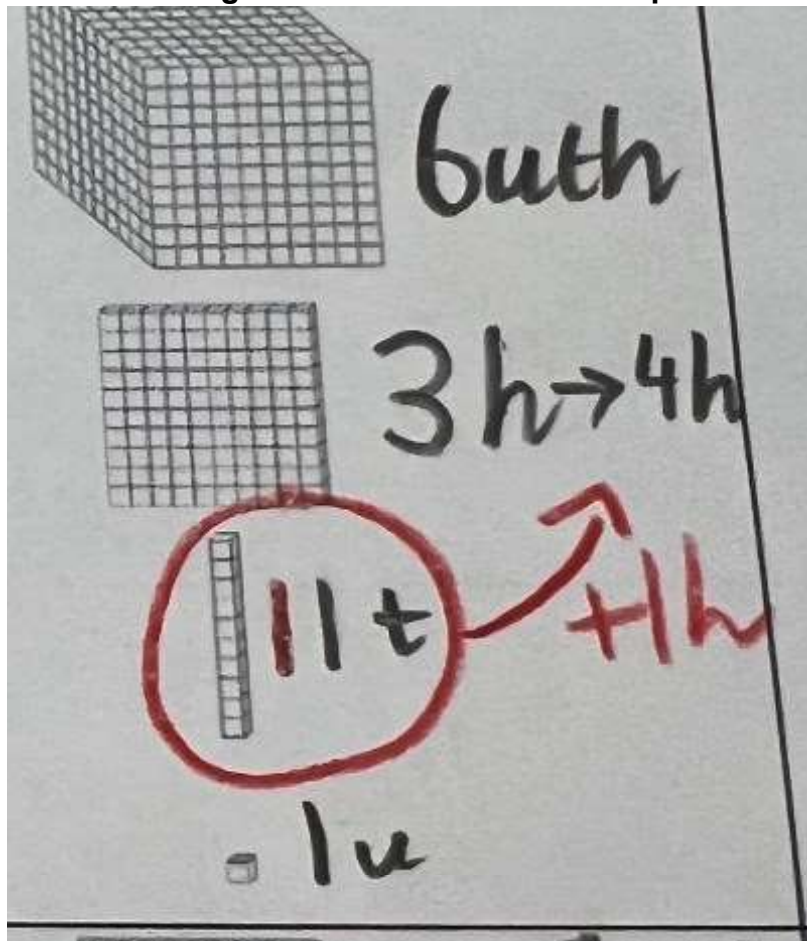 6uth
3h→4h
11t
+1h
1u